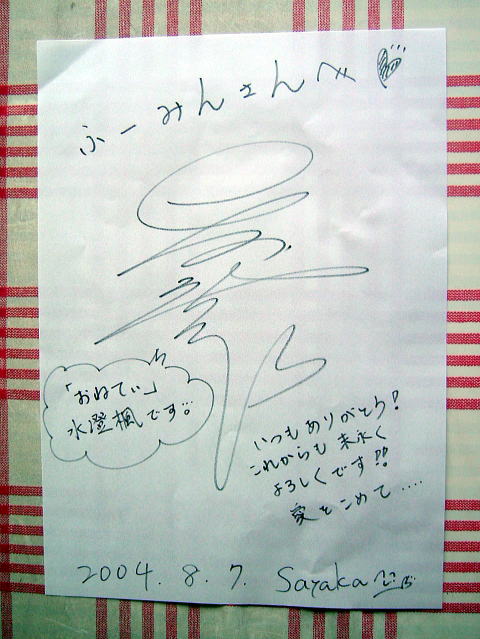 ふーみんさんへ
「おねてぃ」
水澄楓です…
いつもありがとう！
これからも末永く
よろしくです!!
愛をこめて……
2004. 8. 7. Sayaka